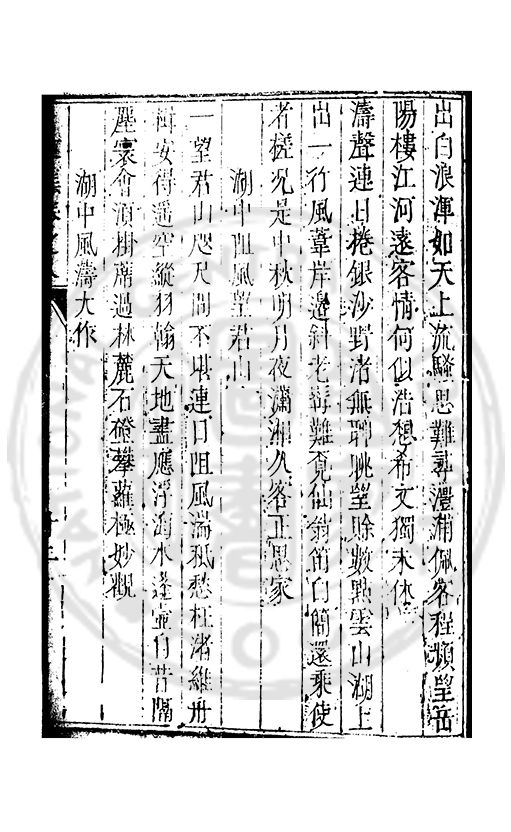 出白浪渾如天上流騷思難尋澧浦佩客程頻望岳
陽樓江河遠客情何似浩想希文獨未休
濤聲連日捲銀沙野渚無聊眺望賒數點雲山湖上
出一行風葦岸邊斜老尋難覓仙翁笛白簡還乘使
者槎況是中秋明月夜瀟湘久客正思家
湖中阻風望君山
一望君山咫尺間不堪連日阻風湍孤愁枉渚維舟
楫安得遥空縱羽翰天地盡應浮海水蓬壺自昔隔
塵寰會須掛蓆過林麓石磴攀蘿極妙觀
湖中風濤大作